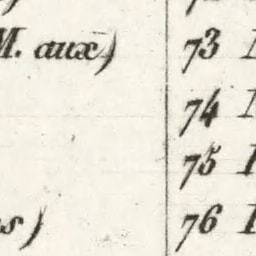 M. aux) 73
74
75
s) 76